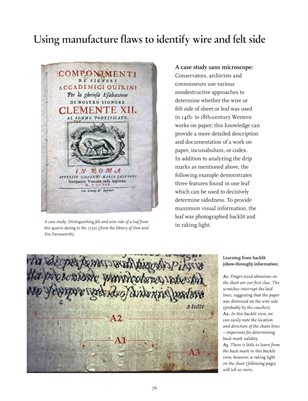 Using manufacture flaws to identify wire and felt side
COMPONIMENTI
DE' SIGNORI
ACCADEMICI QUIRINI
Per la gloriosa Esaltazione
DI NOSTRO SIGNORE
CLEMENTE XII.
AL SOMMO PONTIFICATO.
IN ROMA
A case study: Distinguishing felt and wire side of a leaf from
this quarto dating to the 1730s (from the library of Don and
Era Farnsworth).
A case study sans microscope:
Conservators, archivists and
connoisseurs use various
nondestructive approaches to
determine whether the wire or
felt side of sheet or leaf was used
in 14th- to 18th-century Western
works on paper; this knowledge can
provide a more detailed description
and documentation of a work on
paper, incunabulum, or codex.
In addition to analyzing the drip
marks as mentioned above, the
following example demonstrates
three features found in one leaf
which can be used to decisively
determine sidedness. To provide
maximum visual information, the
leaf was photographed backlit and
in raking light.
A2
A1
A3
Learning from backlit
(show-through) information:
A1. Finger-sized abrasions on
the sheet are our first clue. The
scratches interrupt the laid
lines, suggesting that the paper
was distressed on the wire side
(probably by the coucher).
A2. In this backlit view, we
can easily note the location
and direction of the chain lines
– important for determining
back mark validity.
A3. There is little to learn from
the back mark in this backlit
view; however, a raking light
on the sheet (following page)
will tell us more.
76